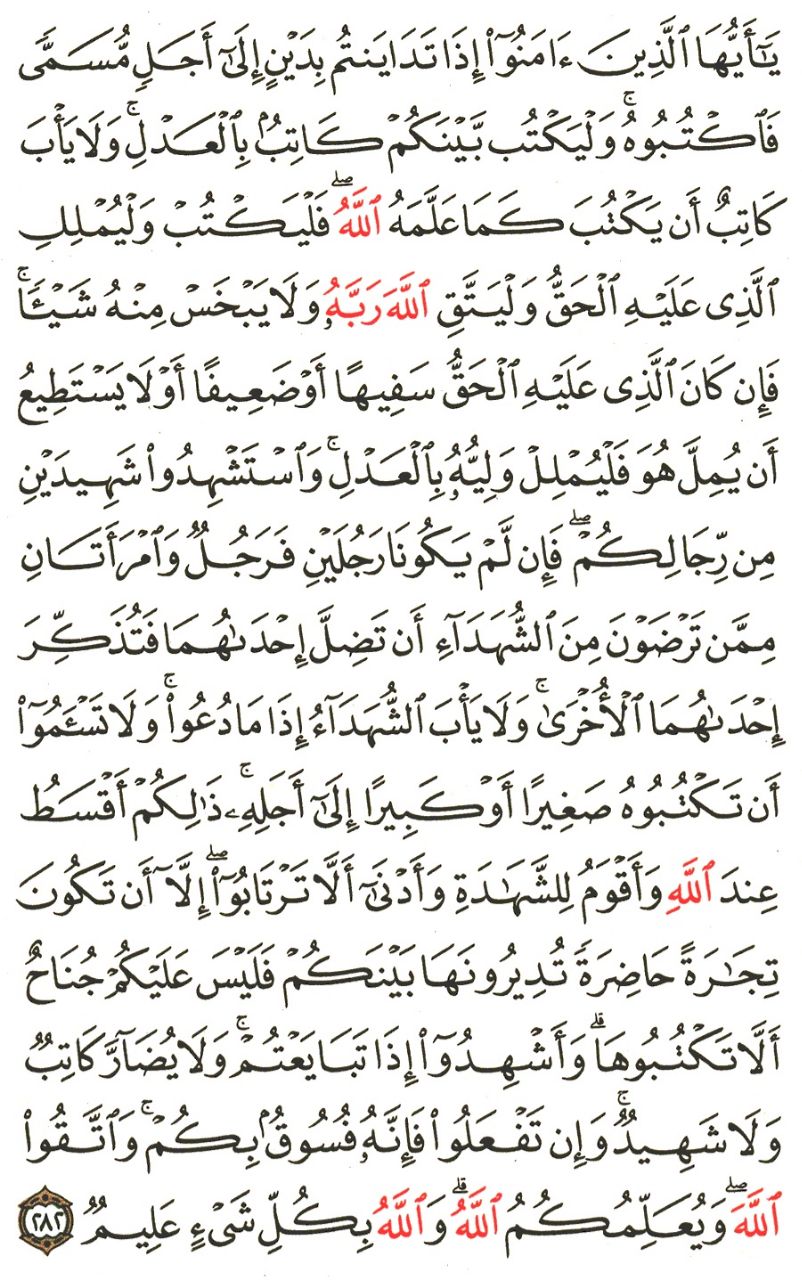 يَـٰٓأَيُّهَا ٱلَّذِينَ ءَامَنُوٓا۟ إِذَا تَدَايَنتُم بِدَيْنٍ إِلَىٰٓ أَجَلٍ مُّسَمًّى
فَٱكْتُبُوهُ ۚ وَلْيَكْتُب بَّيْنَكُمْ كَاتِبٌۢ بِٱلْعَدْلِ ۚ وَلَا يَأْبَ
كَاتِبٌ أَن يَكْتُبَ كَمَا عَلَّمَهُ ٱللَّهُ ۖ فَلْيَكْتُبْ وَلْيُمْلِلِ
ٱلَّذِى عَلَيْهِ ٱلْحَقُّ وَلْيَتَّقِ ٱللَّهَ رَبَّهُۥ وَلَا يَبْخَسْ مِنْهُ شَيْـًٔا ۚ
فَإِن كَانَ ٱلَّذِى عَلَيْهِ ٱلْحَقُّ سَفِيهًا أَوْ ضَعِيفًا أَوْ لَا يَسْتَطِيعُ
أَن يُمِلَّ هُوَ فَلْيُمْلِلْ وَلِيُّهُۥ بِٱلْعَدْلِ ۚ وَٱسْتَشْهِدُوا۟ شَهِيدَيْنِ
مِن رِّجَالِكُمْ ۖ فَإِن لَّمْ يَكُونَا رَجُلَيْنِ فَرَجُلٌ وَٱمْرَأَتَانِ
مِمَّن تَرْضَوْنَ مِنَ ٱلشُّهَدَآءِ أَن تَضِلَّ إِحْدَىٰهُمَا فَتُذَكِّرَ
إِحْدَىٰهُمَا ٱلْأُخْرَىٰ ۚ وَلَا يَأْبَ ٱلشُّهَدَآءُ إِذَا مَا دُعُوا۟ ۚ وَلَا تَسْـَٔمُوٓا۟
أَن تَكْتُبُوهُ صَغِيرًا أَوْ كَبِيرًا إِلَىٰٓ أَجَلِهِۦ ۚ ذَٰلِكُمْ أَقْسَطُ
عِندَ ٱللَّهِ وَأَقْوَمُ لِلشَّهَـٰدَةِ وَأَدْنَىٰٓ أَلَّا تَرْتَابُوٓا۟ ۖ إِلَّآ أَن تَكُونَ
تِجَـٰرَةً حَاضِرَةً تُدِيرُونَهَا بَيْنَكُمْ فَلَيْسَ عَلَيْكُمْ جُنَاحٌ
أَلَّا تَكْتُبُوهَا ۗ وَأَشْهِدُوٓا۟ إِذَا تَبَايَعْتُمْ ۚ وَلَا يُضَآرَّ كَاتِبٌ
وَلَا شَهِيدٌ ۚ وَإِن تَفْعَلُوا۟ فَإِنَّهُۥ فُسُوقٌۢ بِكُمْ ۗ وَٱتَّقُوا۟
ٱللَّهَ ۖ وَيُعَلِّمُكُمُ ٱللَّهُ ۗ وَٱللَّهُ بِكُلِّ شَىْءٍ عَلِيمٌ ٢٨٢